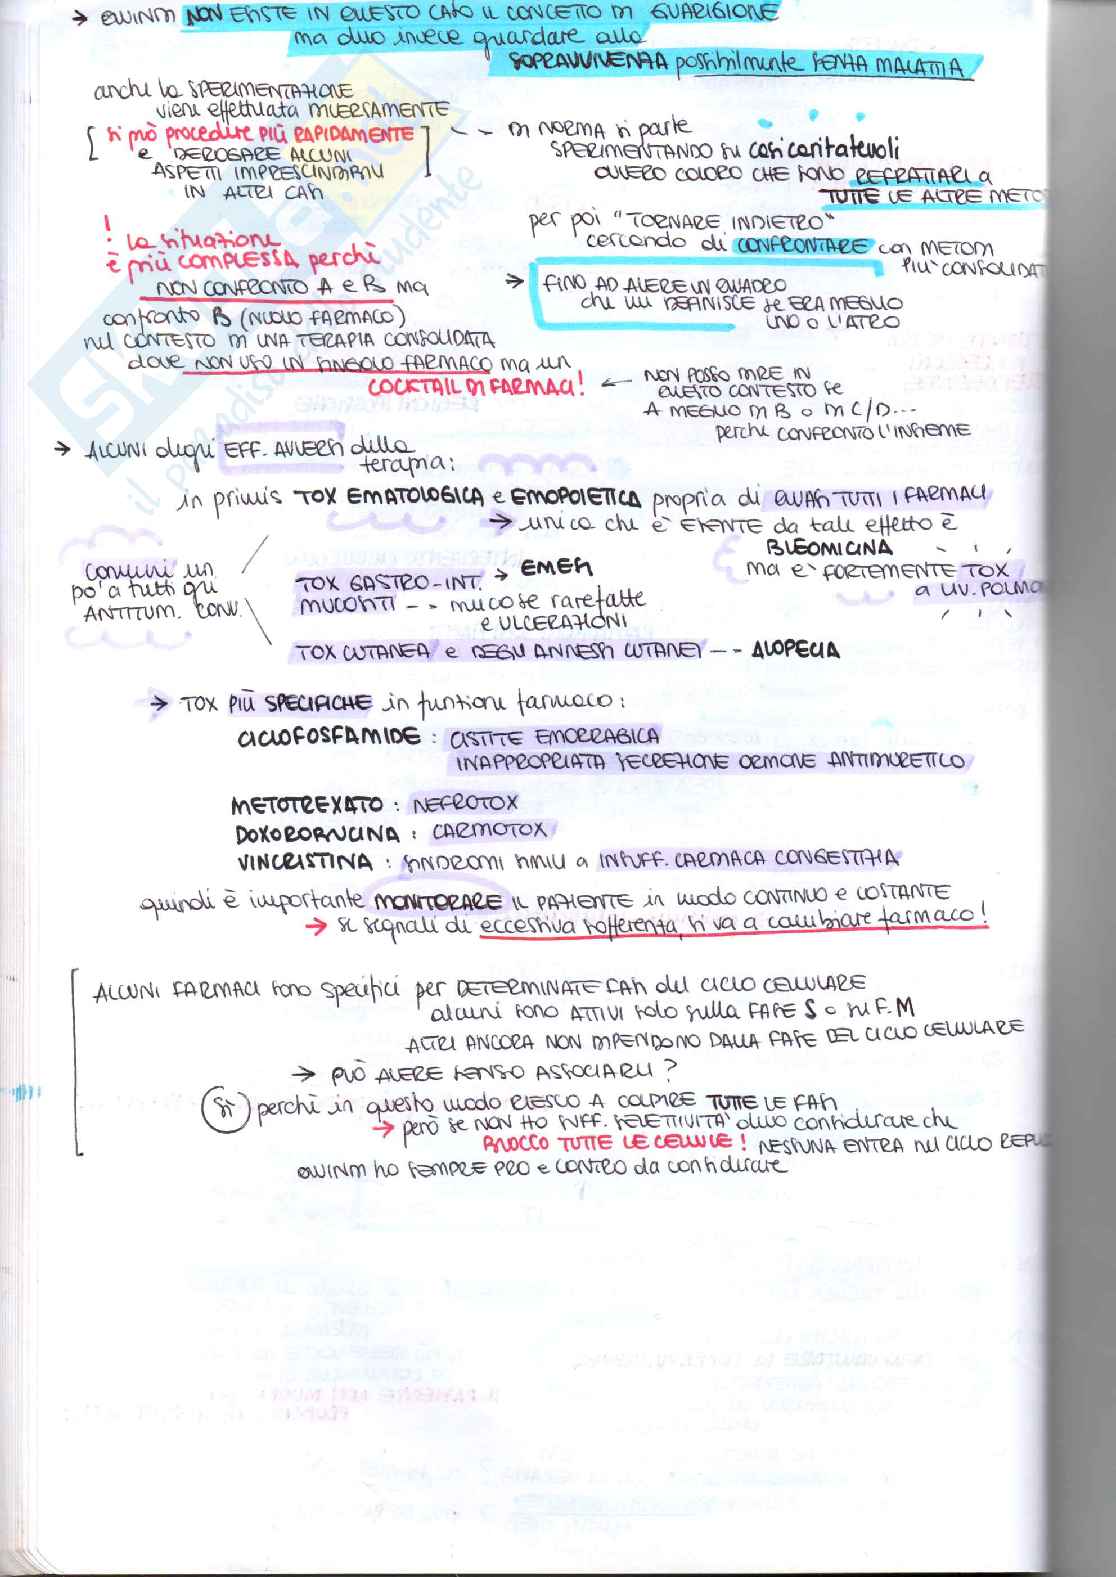 → QUINDI NON ESISTE IN QUESTO CASO IL CONCETTO DI GUARIGIONE
ma devo invece guardare alla
SOPRAVVIVENZA possibilmente SENZA MALATTIA
anche la SPERIMENTAZIONE
viene effettuata DIVERSAMENTE
[si può procedere PIÙ RAPIDAMENTE
e DEROGARE ALCUNI
ASPETTI IMPRESCINDIBILI
IN ALTRI CASI]
-- DI NORMA si parte
SPERIMENTANDO su casi caritatevoli
OVVERO COLORO CHE SONO REFRATTARI a
TUTTE LE ALTRE METO
per poi "TORNARE INDIETRO"
cercando di CONFRONTARE con METODI
PIU' CONSOLIDAT
→ FINO AD AVERE UN QUADRO
che mi DEFINISCE se ERA MEGLIO
UNO o L'ALTRO
! la situazione
è più COMPLESSA perchè
NON CONFRONTO A e B ma
confronto B (NUOVO FARMACO)
nel CONTESTO DI UNA TERAPIA CONSOLIDATA
dove NON USO UN SINGOLO FARMACO ma un
COCKTAIL DI FARMACI!
← NON POSSO DIRE IN
QUESTO CONTESTO SE
A MEGLIO DI B o DI C/D...
perchè CONFRONTO L'INSIEME
→ ALCUNI degli EFF. AVVERSI della
terapia:
in primis TOX EMATOLOGICA e EMOPOIETICA propria di QUASI TUTTI I FARMACI
→ unica che è ESENTE da tale effetto è
BLEOMICINA
ma e' FORTEMENTE TOX
a LIV. POLMO
comuni un
po' a tutti gli
ANTITUM. CONV.
TOX GASTRO-INT. → EMESI
MUCOSITI -- mucose rarefatte
e ULCERAZIONI
TOX CUTANEA e DEGLI ANNESSI CUTANEI -- ALOPECIA
→ TOX PIÙ SPECIFICHE in funzione farmaco:
CICLOFOSFAMIDE: CISTITE EMORRAGICA
INAPPROPRIATA SECREZIONE ORMONE ANTIDIURETICO
METOTREXATO: NEFROTOX
DOXORORUCINA: CARDIOTOX
VINCRISTINA: SINDROMI SIMILI a INSUFF. CARDIACA CONGESTIZIA
quindi è importante MONITORARE IL PAZIENTE in modo CONTINUO e COSTANTE
→ se segnali di eccessiva sofferenza, si va a cambiare farmaco!
ALCUNI FARMACI sono specifici per DETERMINATE FASI del CICLO CELLULARE
alcuni sono ATTIVI solo sulla FASE S o su F.M
ALTRI ANCORA NON DIPENDONO DALLA FASE DEL CICLO CELLULARE
→ PUÒ AVERE SENSO ASSOCIARLI?
SÌ perchè in questo modo RIESCO A COLPIRE TUTTE LE FASI
→ però se NON HO SUFF. SELETTIVITA' devo considerare che
BLOCCO TUTTE LE CELLULE! NESSUNA ENTRA nel CICLO REPLI
QUINDI ho SEMPRE PRO e CONTRO da considerare